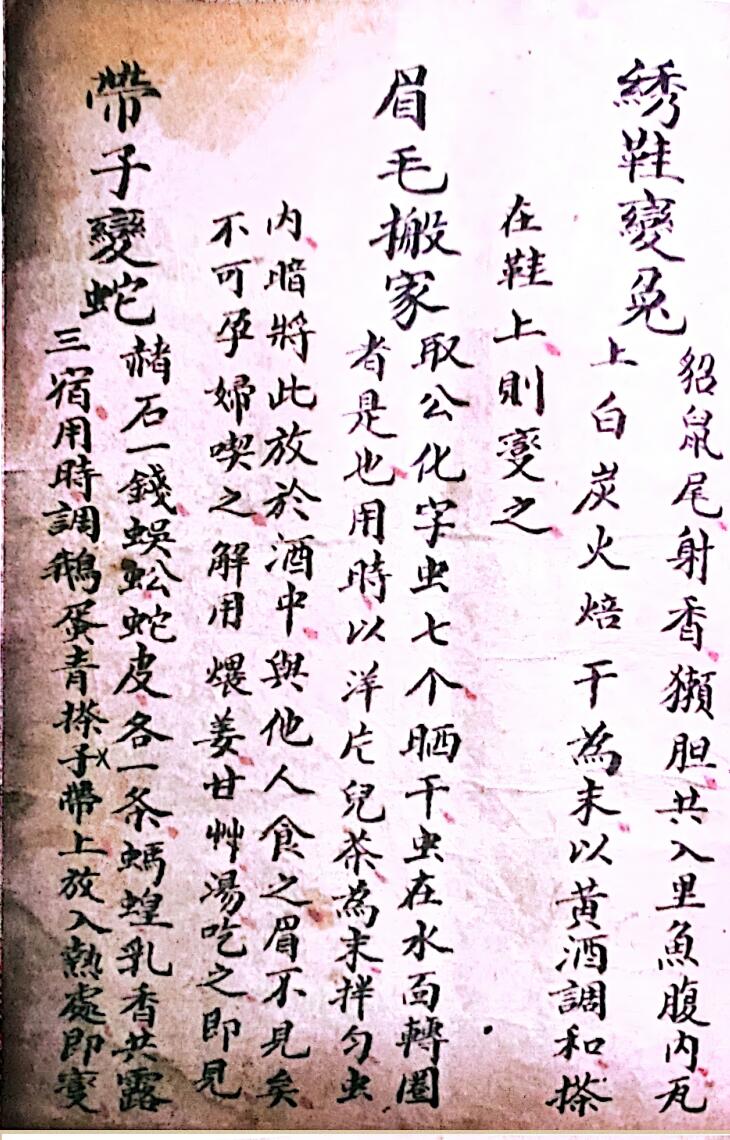 綉鞋變兔
貂鼠尾射香獺胆共入里魚腹内瓦
上白炭火焙干為末以黃酒調和搽
在鞋上則變之
眉毛搬家
取公化字虫七个晒干虫在水面轉圈
者是也用時以洋片兒茶為末拌匀虫
内暗將此放於酒中與他人食之眉不見矣
不可孕婦喫之解用煨姜甘艸湯吃之即見
帶子變蛇
赭石一錢蜈蚣蛇皮各一条螞蝗乳香共露
三宿用時調鵝蛋青搽子帶上放入熱處即變